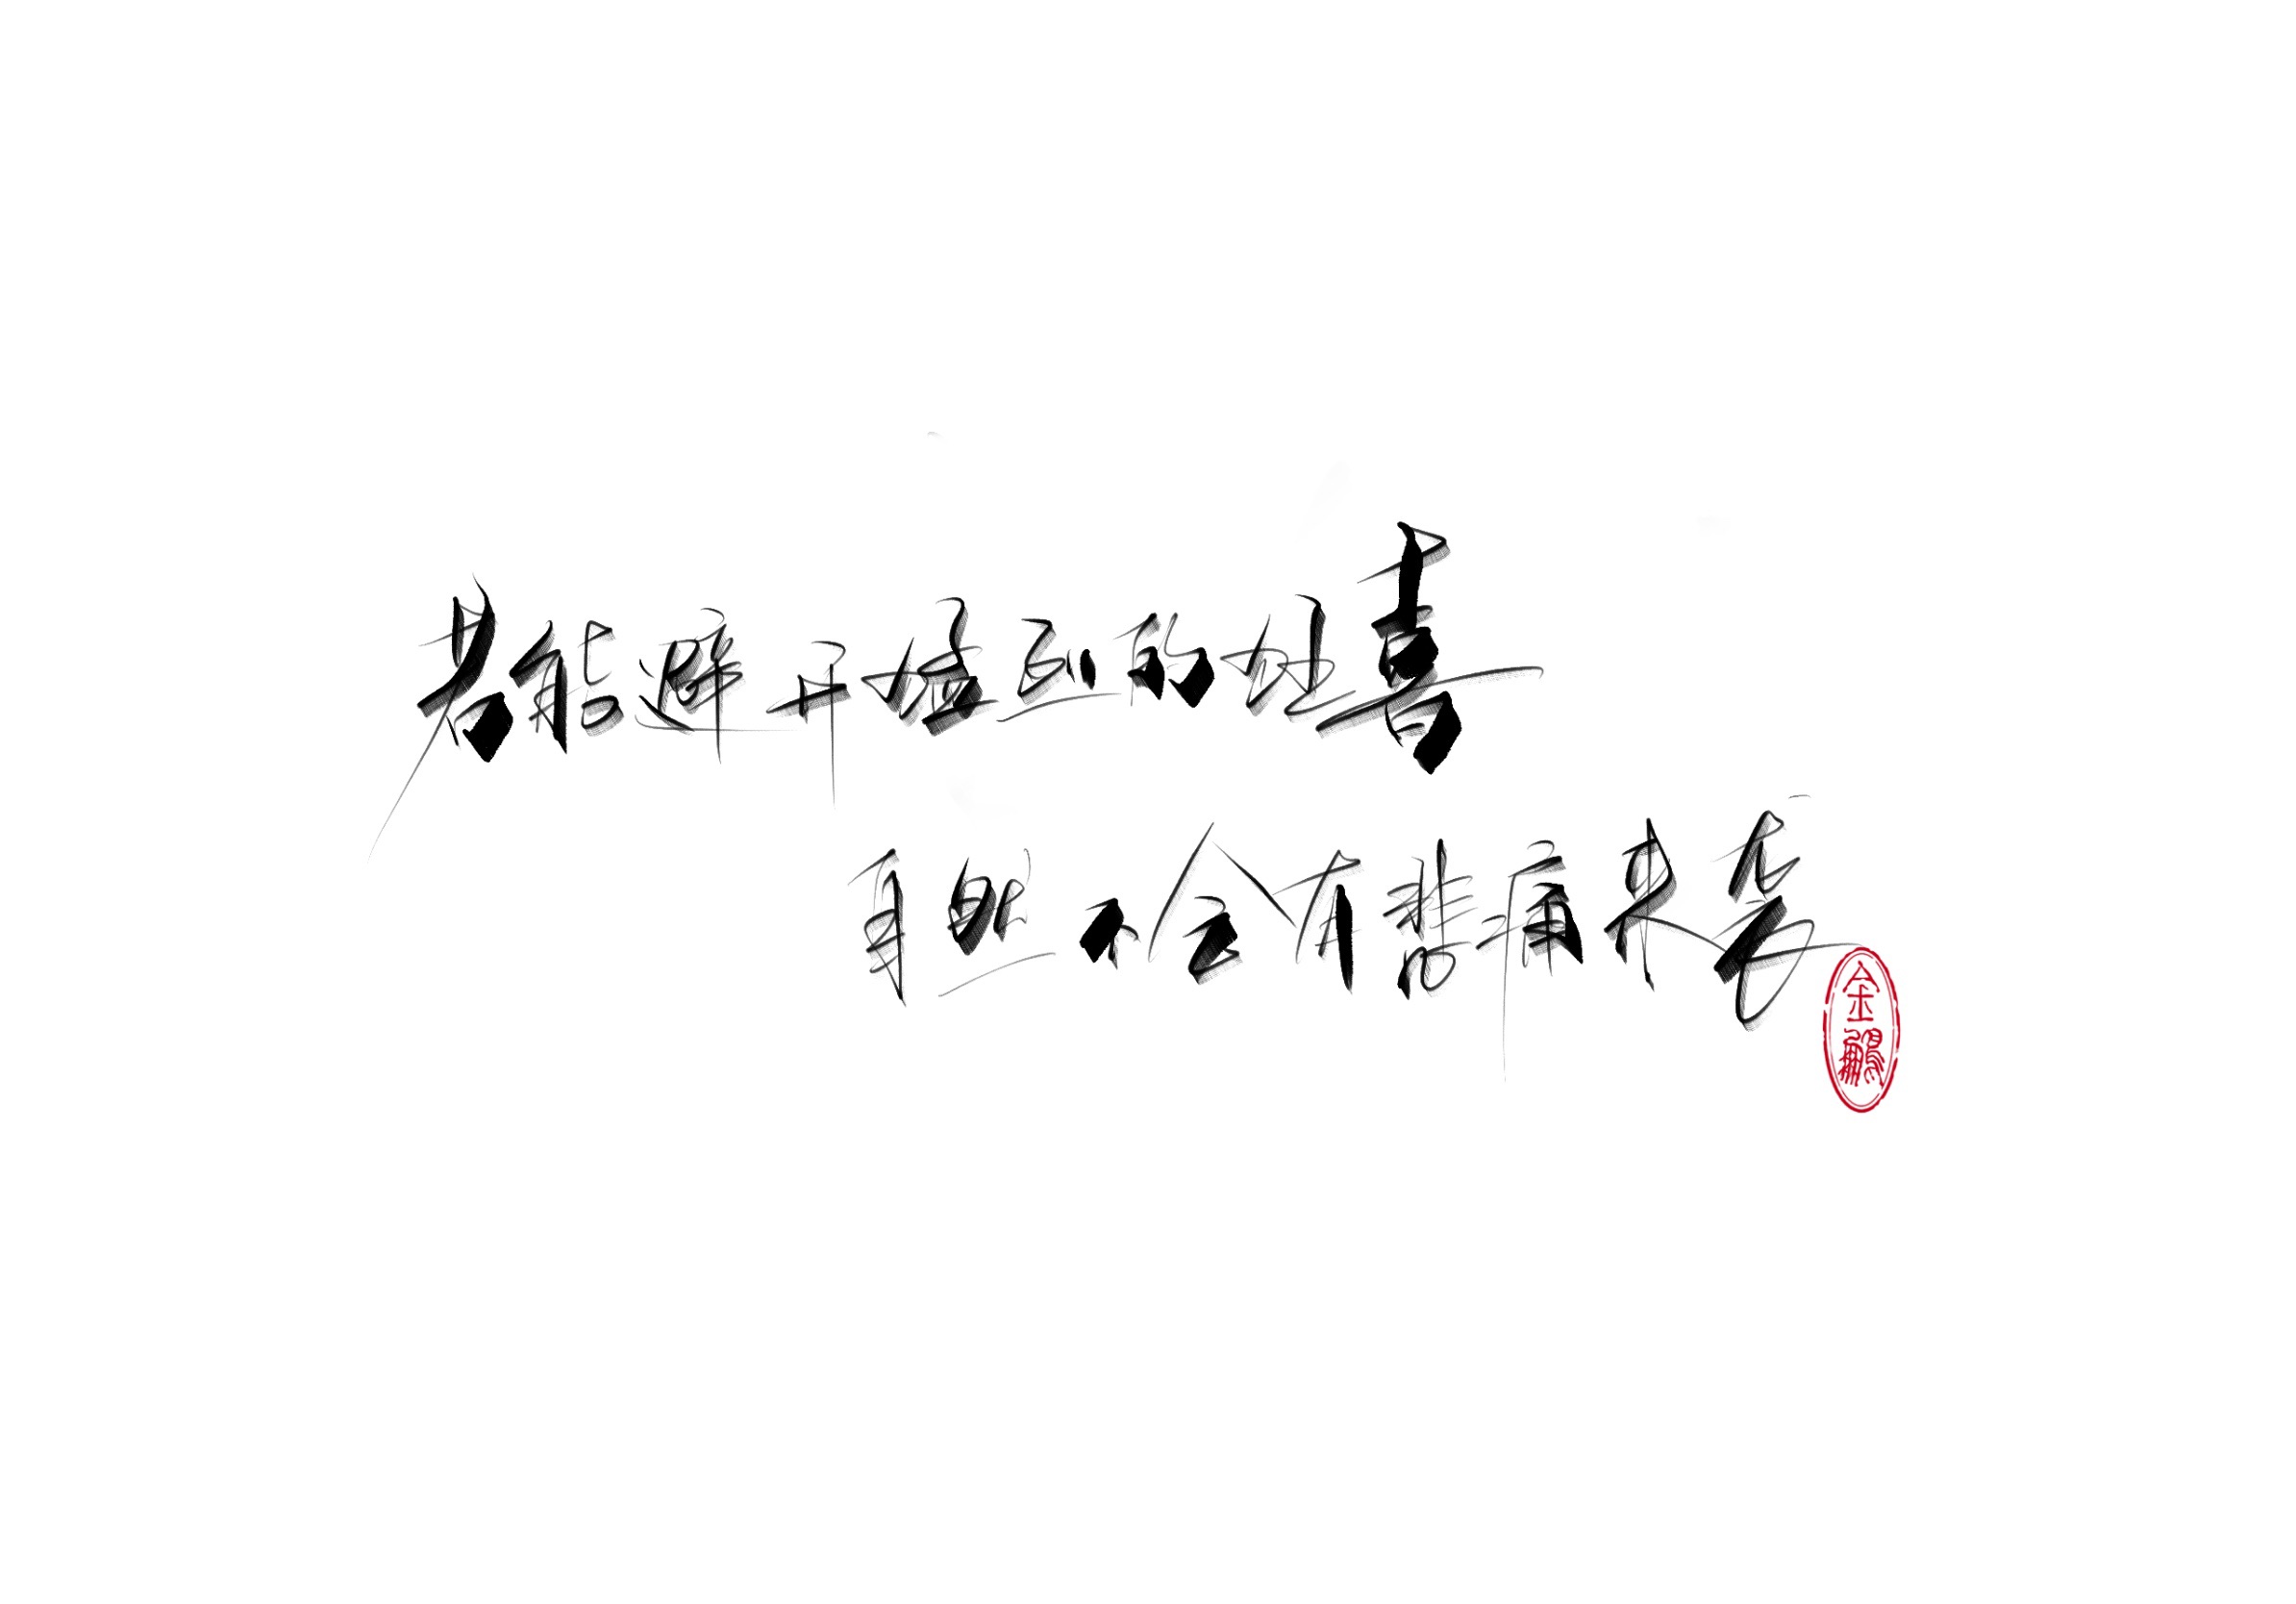 若能避开猛烈的狂喜
自然不会有悲痛来袭
金